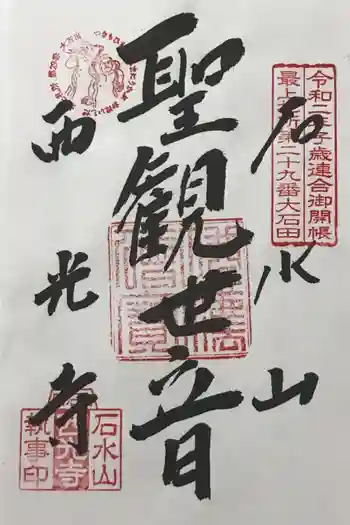 石水山
聖観世音
西光寺
令和二子歳連合御開帳
最上三十三所第二十九番大石田
石水山
西光寺
執事印